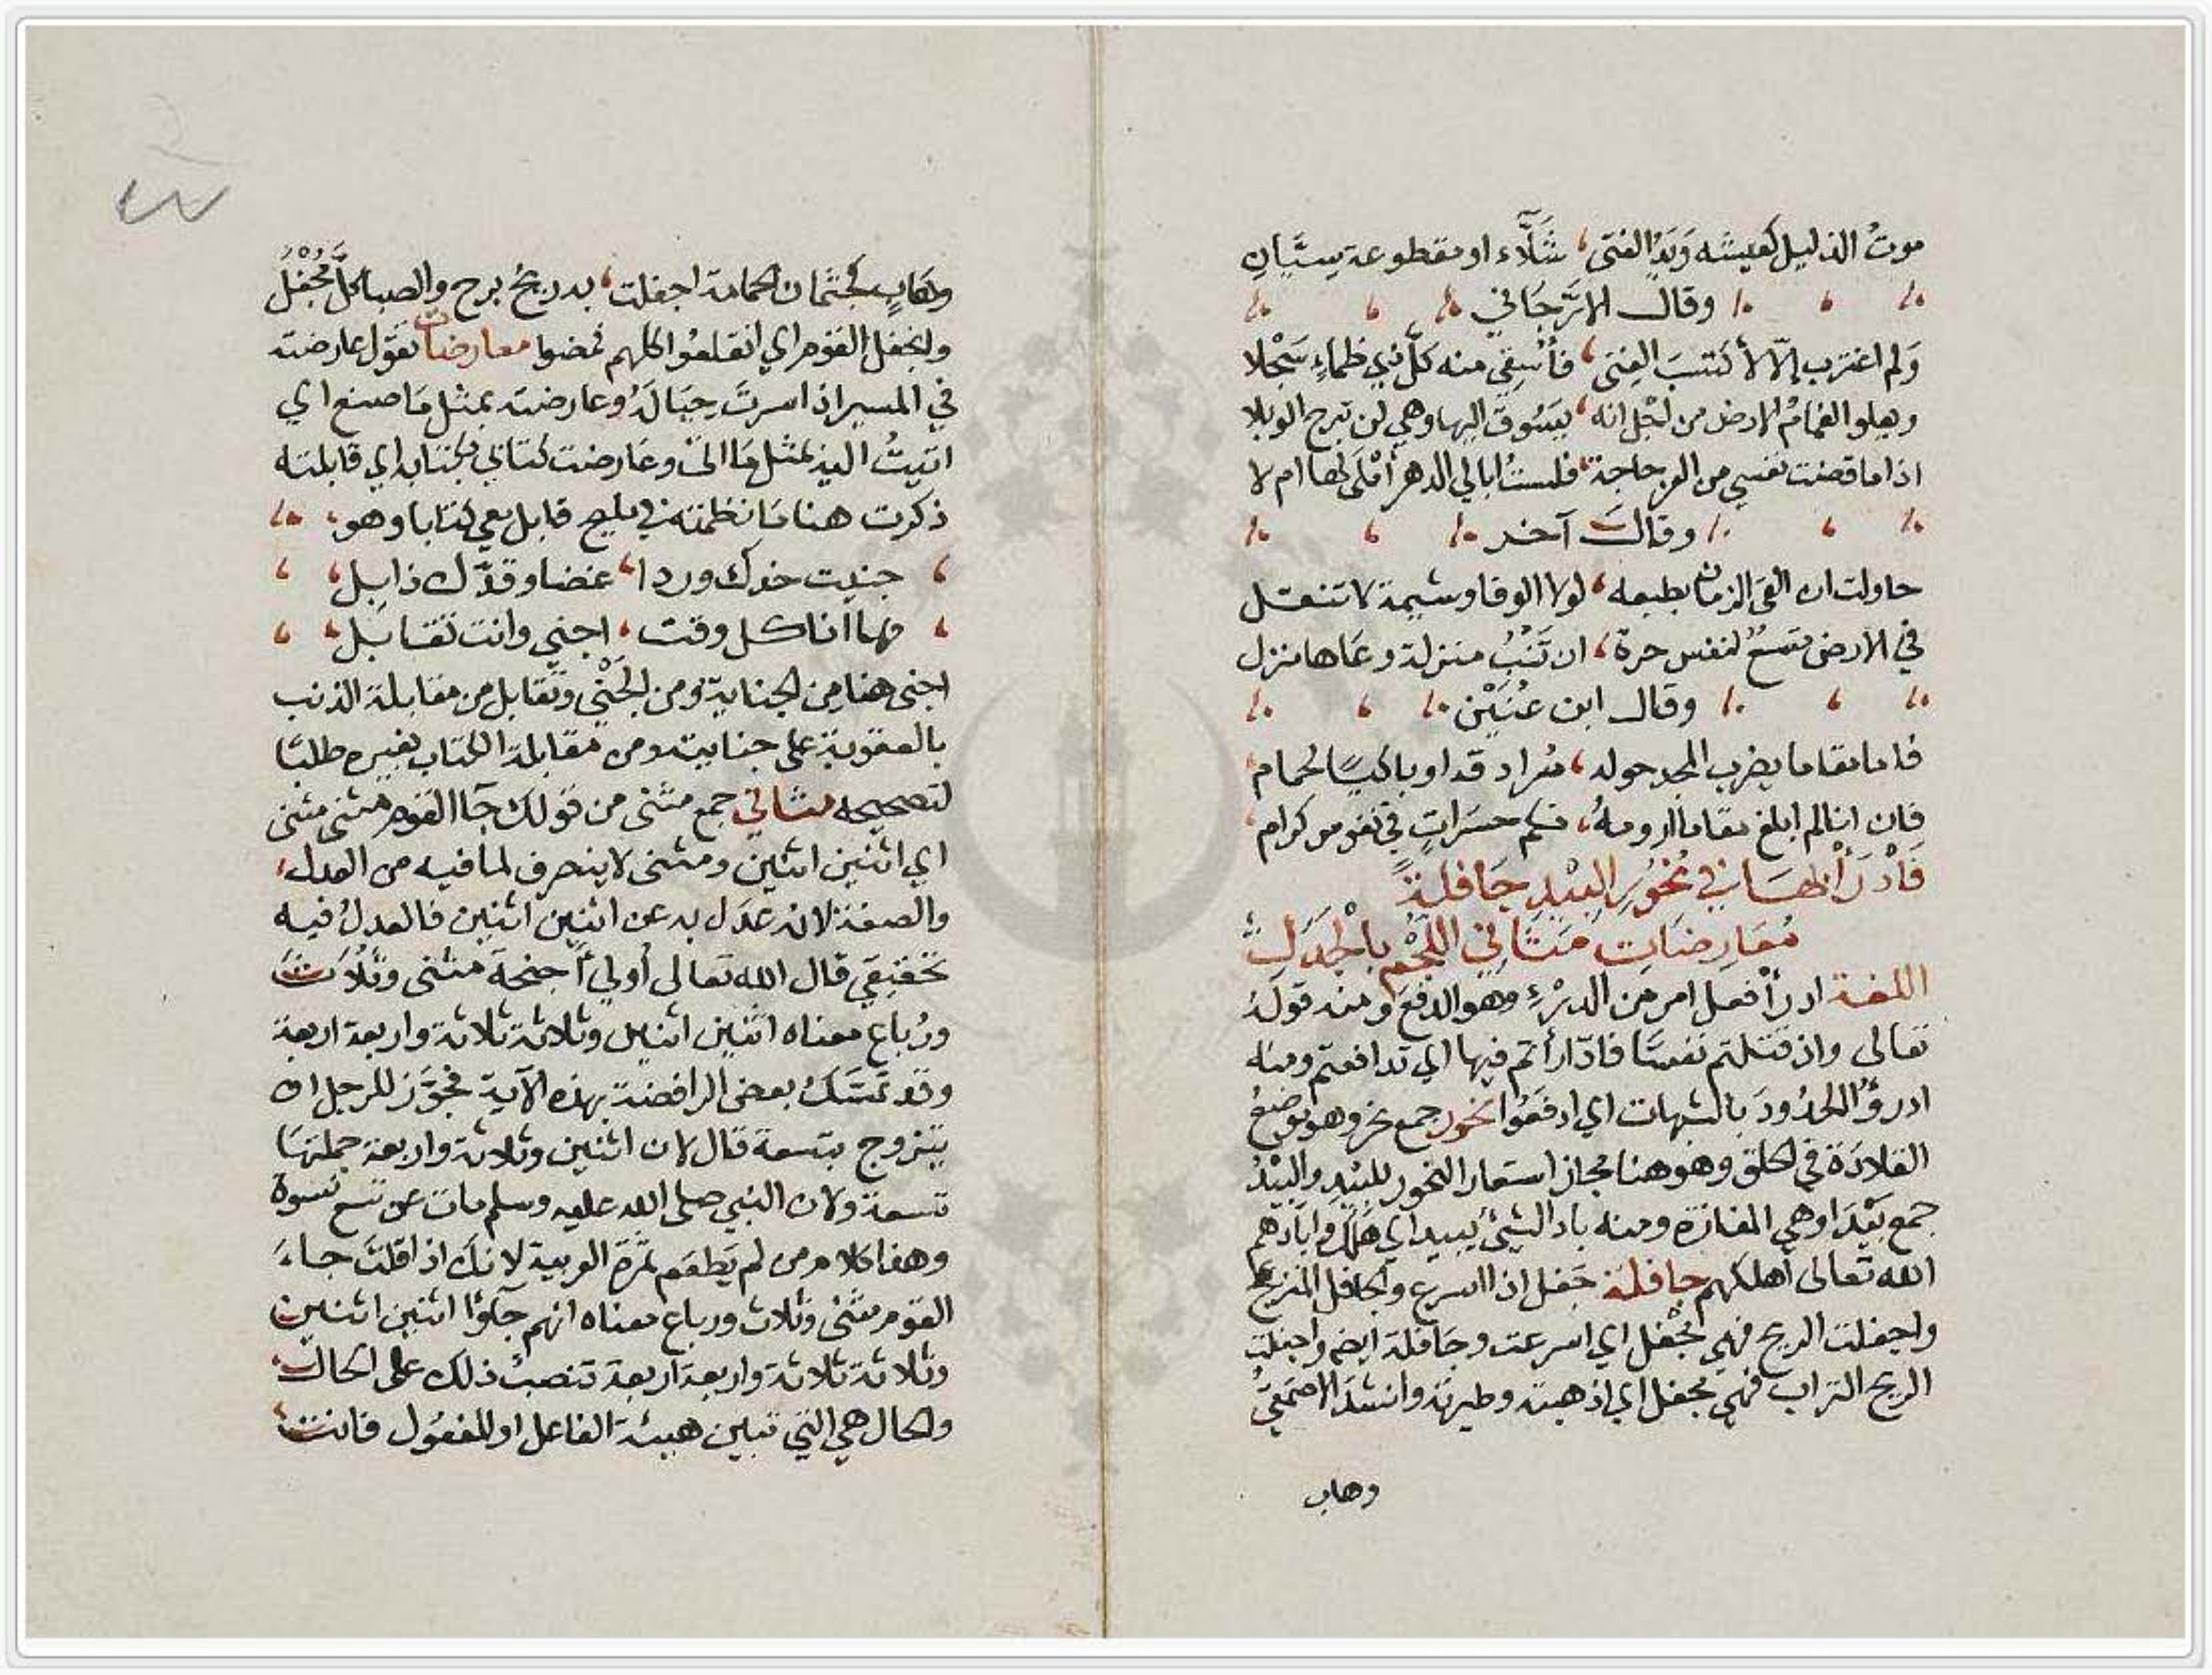 موتُ الذليل كعيشه وَيَدُ الفتى، شَلَّاء او مقطوعة سِيَّانِ
وقال الارَّجَاني
وَلم اغترب إلّا لأكتسبَ الغِنى، فأُسقِي منه كلَّ ذي ظماءٍ سَجْلا
ويعلو الغمامُ الارض من اجل انه، يَسُوق اليها وهي لن تبرح الوبلا
اذا ما قضت نفسي من العز حاجة، فلستُ ابالي الدهر أَمْلَى لها ام لا
وقال آخر
حاولت ان القى الزمان بطبعه، لولا الوفا وشيمة لا تنقل
في الارض متسعٌ لنفس حرة، ان تَنْبُ منزلة دعاها منزل
وقال ابن عُنَيْن
فاما مقاما يضرب المجد حوله، سُرادقه او باكيًا لحمام
فان انا لم ابلغ مقاما ارومهُ، فكم حسَراتٍ في نفوس كرام
فَادْرَأْ بِهَا فِي نُحُورِ البِيْدِ جَافِلَةً
مُعَارِضَاتِ مَثَانِي اللُّجْمِ بِالْجُدُلِ
اللغة ادرأ افعل امر من الدرْءِ وهو الدفع ومنه قولهُ
تعالى واذ قتلتم نفسًا فادّارأتم فيها اي تدافعتم ومنه
ادرؤُا الحدُودَ بالشبهات اي ادفَعُوا نحور جمع نحر وهو موضعُ
القلادَة في الحلق وهو هنا مجاز استعار النحور للبِيْدِ والبِيْدُ
جمع بَيْدَا وهي المفازة ومنه باد الشيئُ يبيد اي هَلَكَ وابَادهم
الله تعالى اهلكهم جافلة جَفل اذا اسرع والجافل المنزعج
واجفلت الريح فهي مُجْفل اي اسرعت وجَافلة ايضا واجفلت
الريح التراب فهي مجفل اي اذهبته وطيرته وانشدَ الاصمَعيُّ
وهاب
وهَابٍ كجثمان الحمامة اجفلت، به ريحُ برح والصبا كلَّ مُجْفَلُ
وانجفل القوم اي انقلعُوا كلهم فمضوا معارضات تقول عارضته
في المسير اذا سرتَ حِيَالَهُ وعارضته بمثل مَا صنع اي
اتيتُ اليه بمثل مَا اتى وعَارضت كتابي بكتابه اي قابلته
ذكرت هنا مَا نظمته في مليح قابل معي كتابا وهو
جنيت خدك وردا، غضا وقدّك ذابل
فها انا كل وقت، اجني وانت تقابل
اجني هنا مِن الجناية ومن الجَنْي وتقابل من مقابلة الذنب
بالعقوبة على جنايته ومن مقابلة الكتاب بغيره طلبًا
لتصحيحه مثاني جمع مثنى من قولك جآا القوم مثنى مثنى
اي اثنين اثنين ومثنى لا ينصرف لما فيه من العدل
والصفة لانه عدَل به عن اثنين اثنين فالعدلُ فيه
تحقيقي قال الله تعالى أُولي أَجنحة مثنى وثُلَاثَ
ورُباعَ معناه اثنين اثنين وثلاثة ثلاثة واربعة اربعة
وقد تمسَّكَ بعض الرافضة بهذه الآية فجوَّز للرجل ان
يتزوج بتسعة قال لان اثنين وثلاثة واربعة جملتها
تسعة ولان النبي صلى الله عليه وسلم مات عن تسع نسوة
وهذا كلام من لم يَطعَم ثمرَة العربية لانك اذا قلتَ جاءَ
القوم مثنى وثلاث ورباع معناه انهم جآؤا اثنين اثنين
وثلاثة ثلاثة واربعة اربعة تنصبُ ذلك على الحال
والحال هي التي تبين هيئة الفاعل او المفعُول فانت